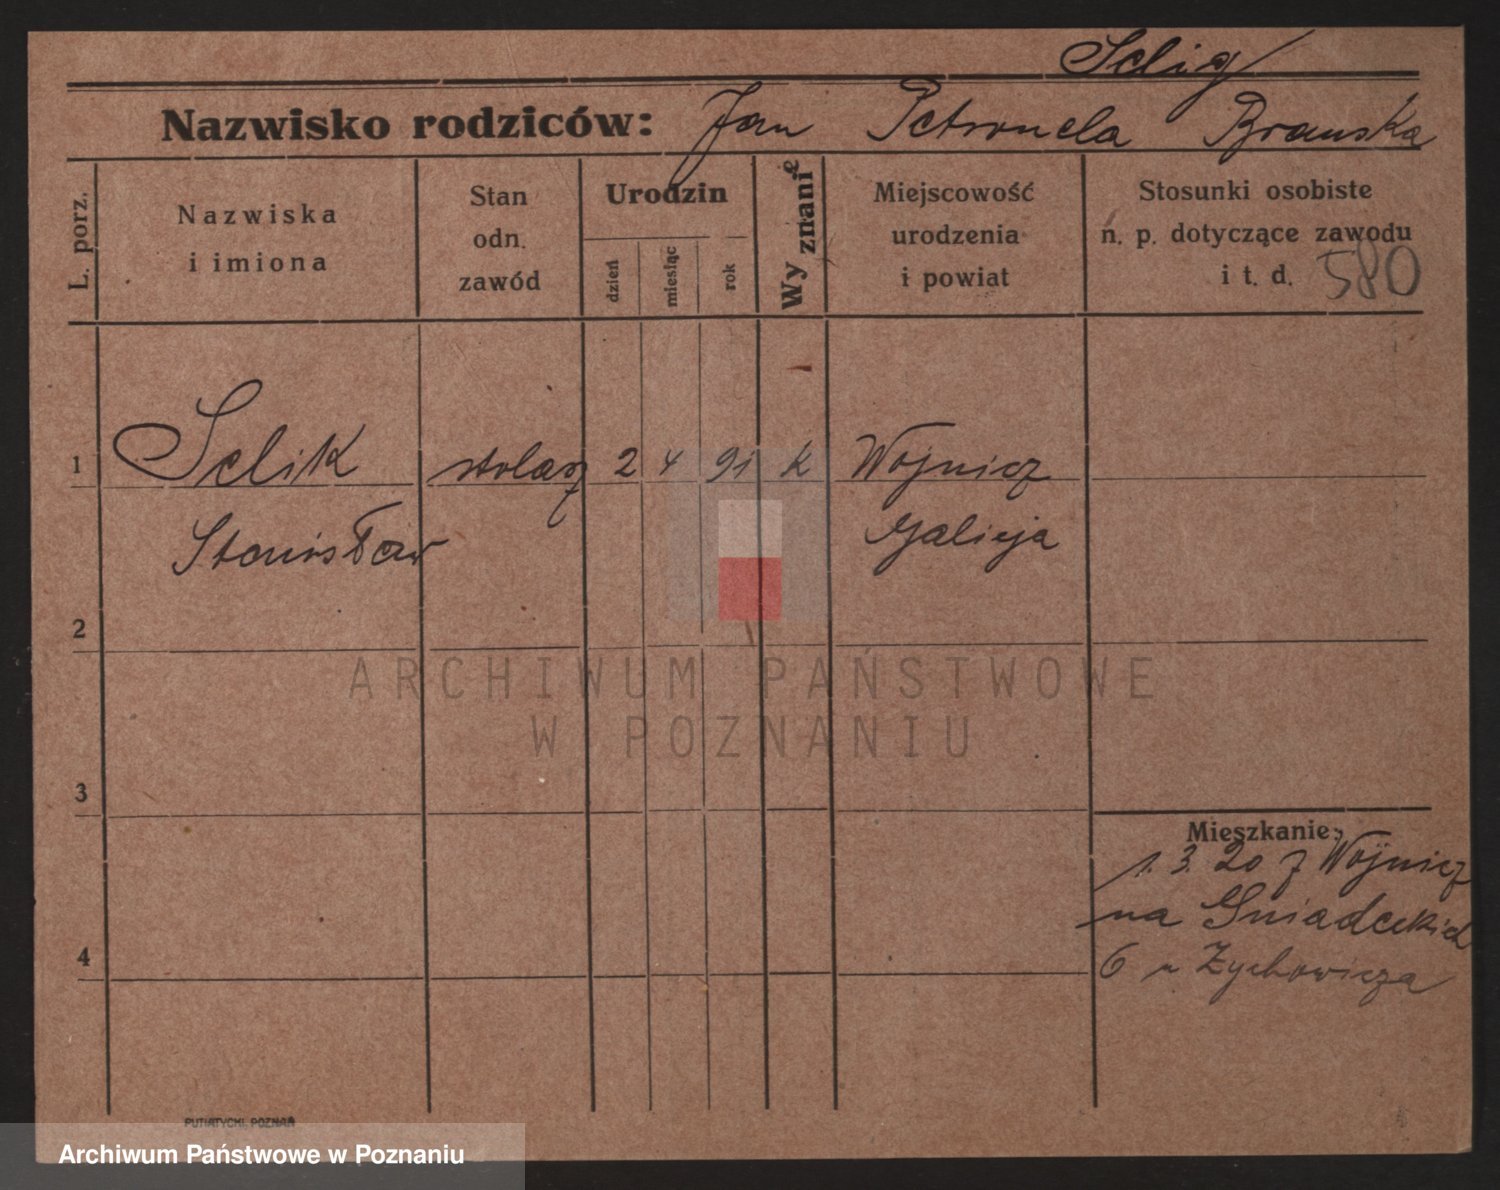 Selig
Nazwisko rodziców: Jan Petronela Branska
L. porz.
Nazwiska
i imiona
Stan
odn.
zawód
Urodzin
dzień
miesiąc
rok
Wyznanie
Miejscowość
urodzenia
i powiat
Stosunki osobiste
n. p. dotyczące zawodu
i t. d. 580
1 Selik stolarz 2 4 91 k Wojnicz
Stanisław Galicja
2
ARCHIWUM PAŃSTWOWE
W POZNANIU
3
Mieszkanie:
1. 3. 20 z Wojnicz
na Śniadeckich
4
6 u Zychowicza
PUTIATYCKI, POZNAŃ
Archiwum Państwowe w Poznaniu